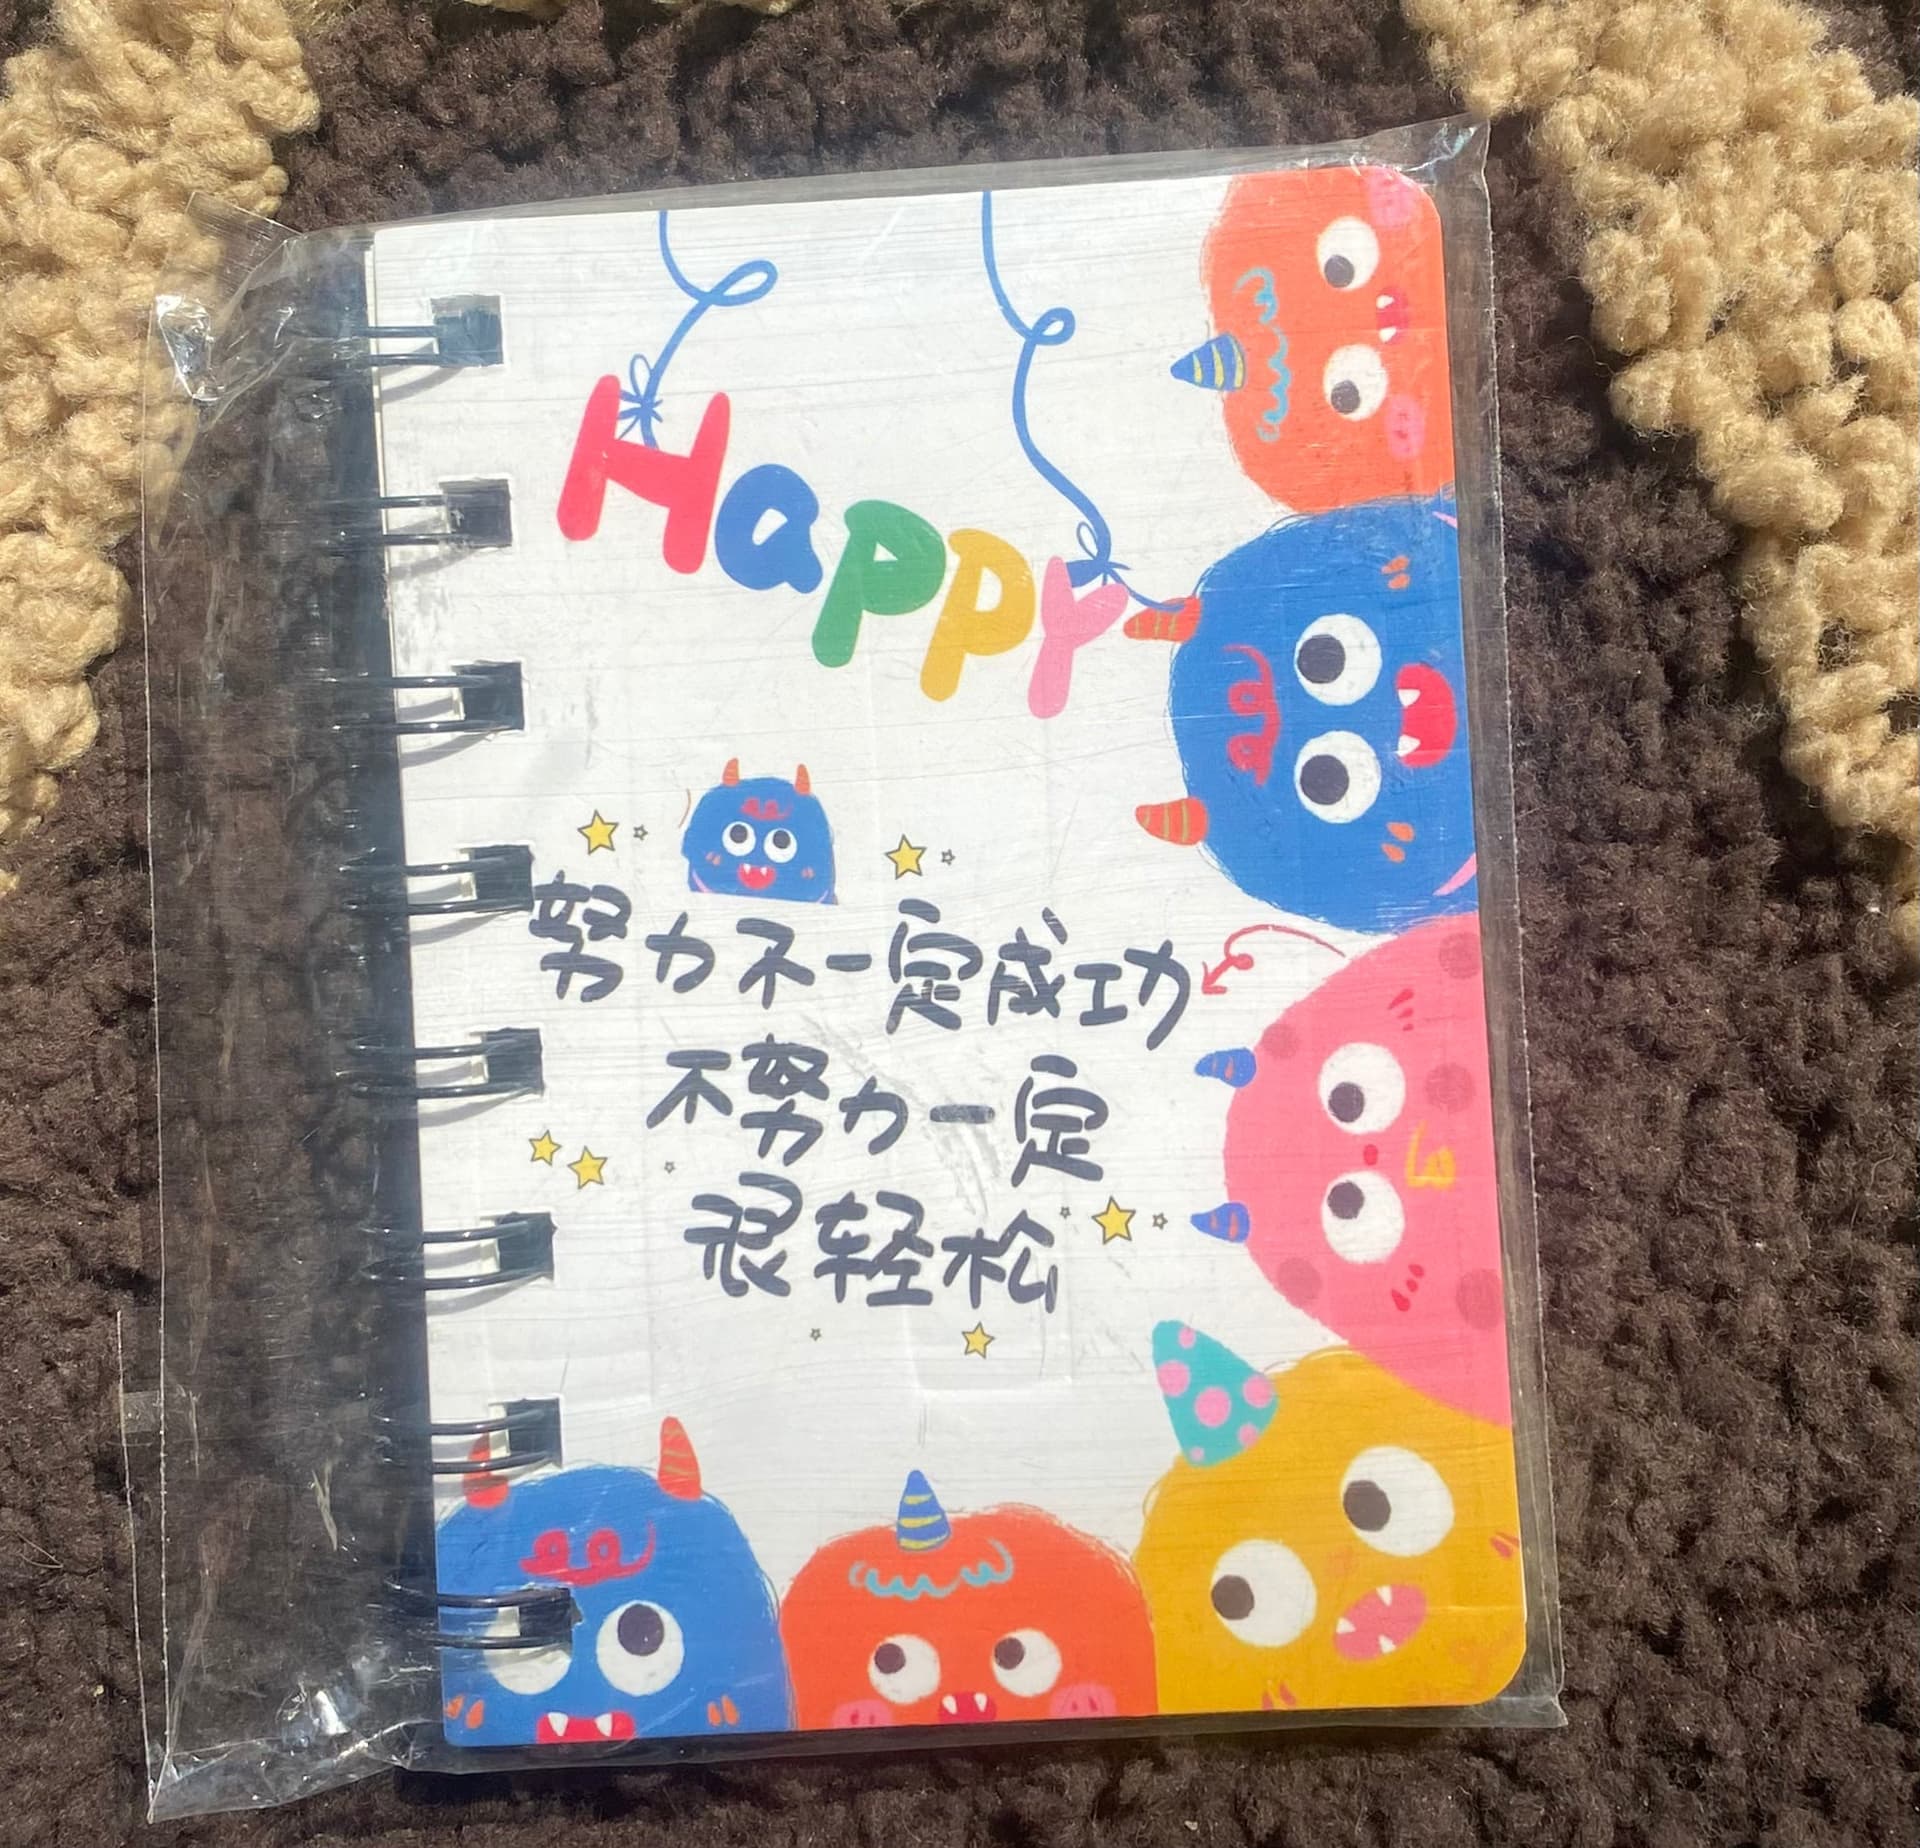 Happy
努力不一定成功
不努力一定
很轻松